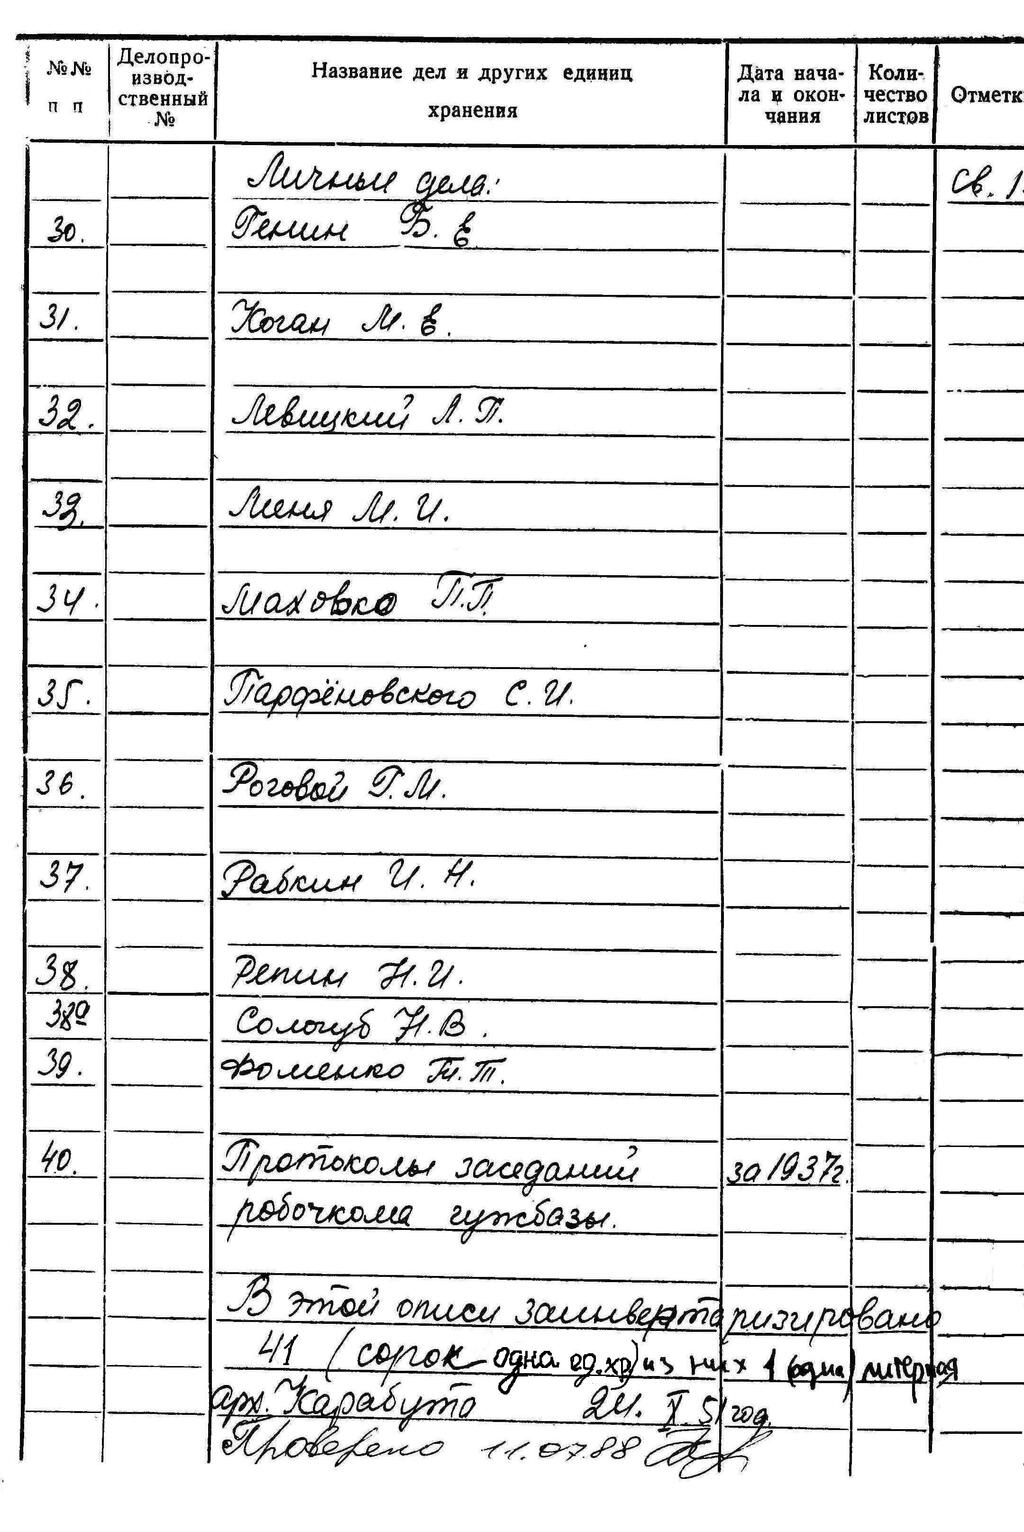 №№ п п Делопро-извод-ственный № Название дел и других единиц хранения Дата нача-ла и окон-чания Коли-чество листов Отметк
Личные дела: Св. 1.
30. Генин Б. Е
31. Коган М. Е.
32. Левицкий Л. П.
33. Меня М. И.
34. Маховко П.П.
35. Парфёновского С. И.
36. Роговой Г. М.
37. Рабкин И. Н.
38. Репин Н. И.
38а Сологуб Н. В.
39. Фоменко Т. Т.
40. Протоколы заседаний за 1937г.
робочкома гужбазы.
В этой описи заинвертаризировано
41 (сорок одна ед. хр) из них 1 (одна) литерная
арх. Карабута 24. X. 51 год.
Проверено 11.07.88